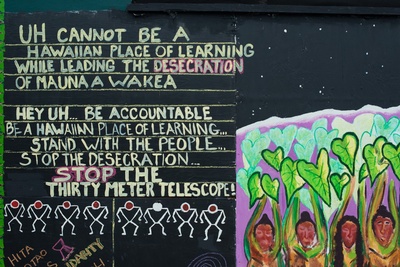 UH CANNOT BE A
HAWAIIAN PLACE OF LEARNING
WHILE LEADING THE DESECRATION
OF MAUNA A WAKEA
HEY UH... BE ACCOUNTABLE
BE A HAWAIIAN PLACE OF LEARNING...
STAND WITH THE PEOPLE...
STOP THE DESECRATION...
STOP THE
THIRTY METER TELESCOPE!
HITA